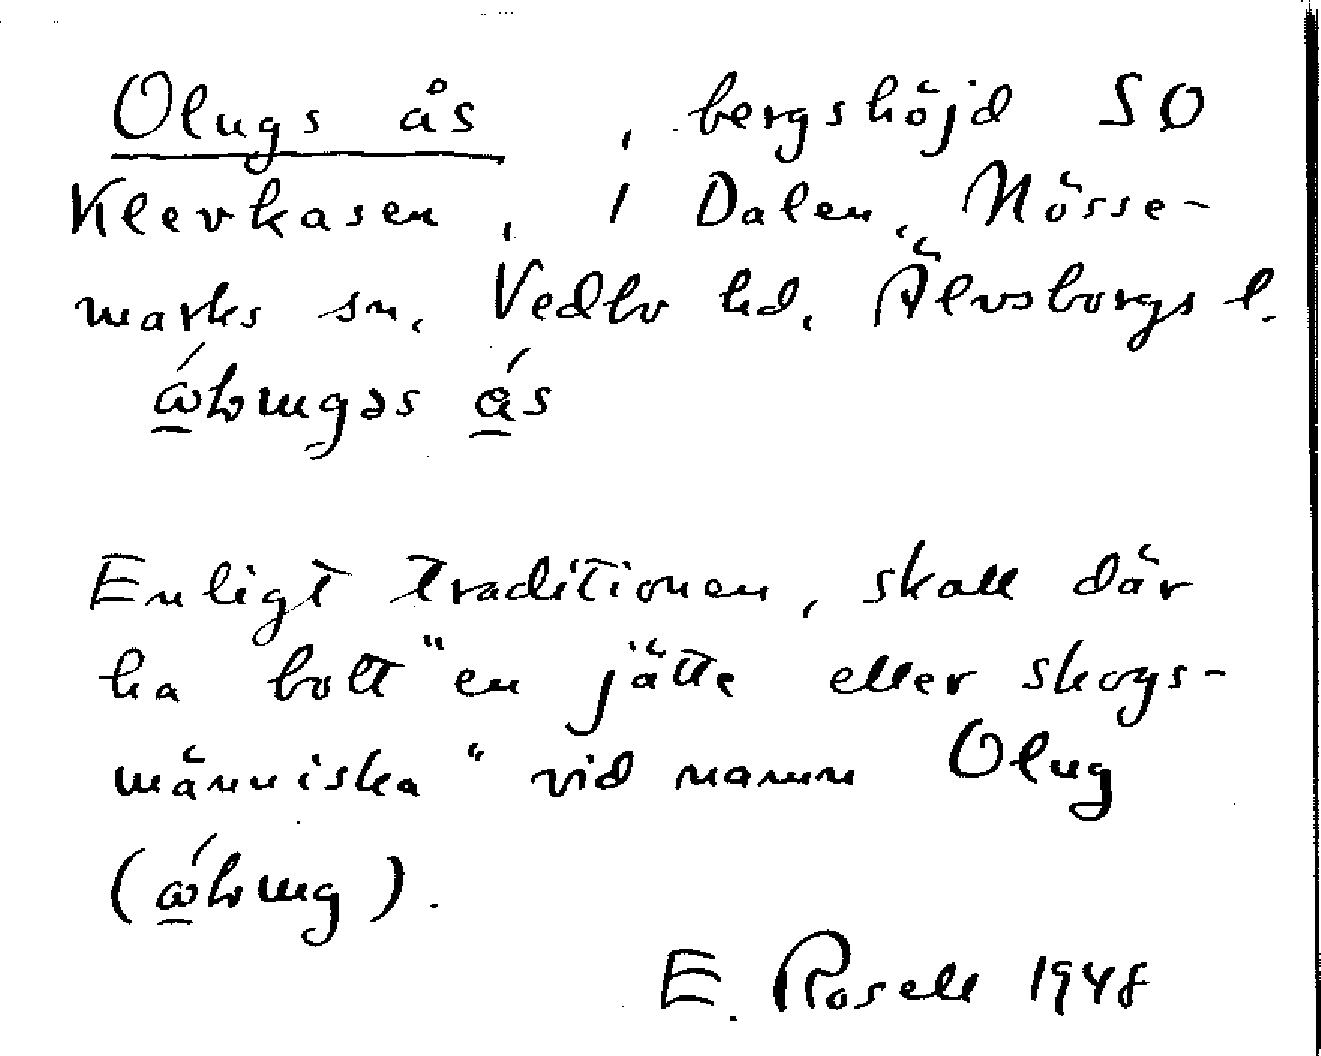 Olugs ås , bergshöjd SO
Klevkasen, i Dalen, Nösse-
marks sn. Vedbo hd. Älvsborgs l.
ås
Enligt traditionen, skall där
ha bott "en jätte eller skogs-
människa" vid namn Olug
E. Rosell 1948